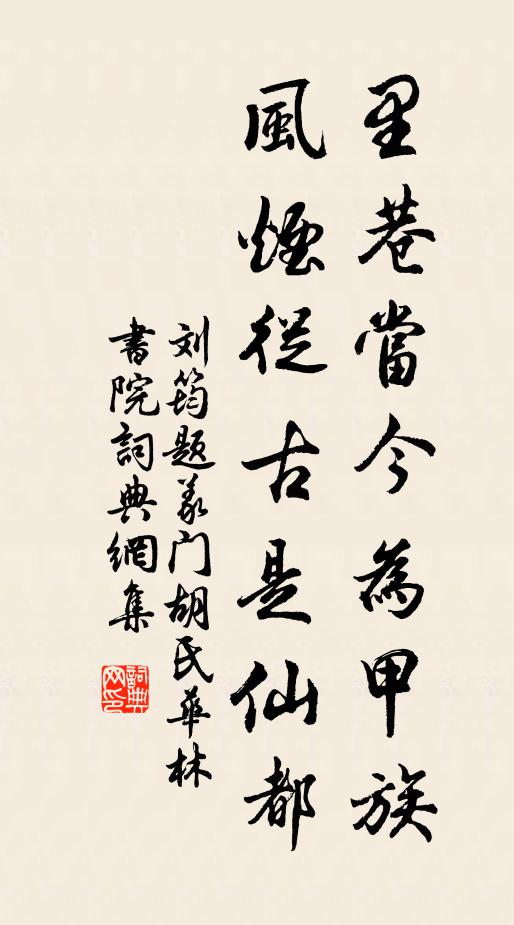 里巷當今為甲族
風煙從古是仙都
刘筠題義门胡氏華林
書院詞典網集
詞典网印